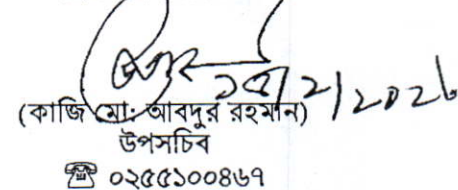 ১৫/2/2026
(কাজি মো: আবদুর রহমান)
উপসচিব
☎ ০২৫৫১০০৪৬৭